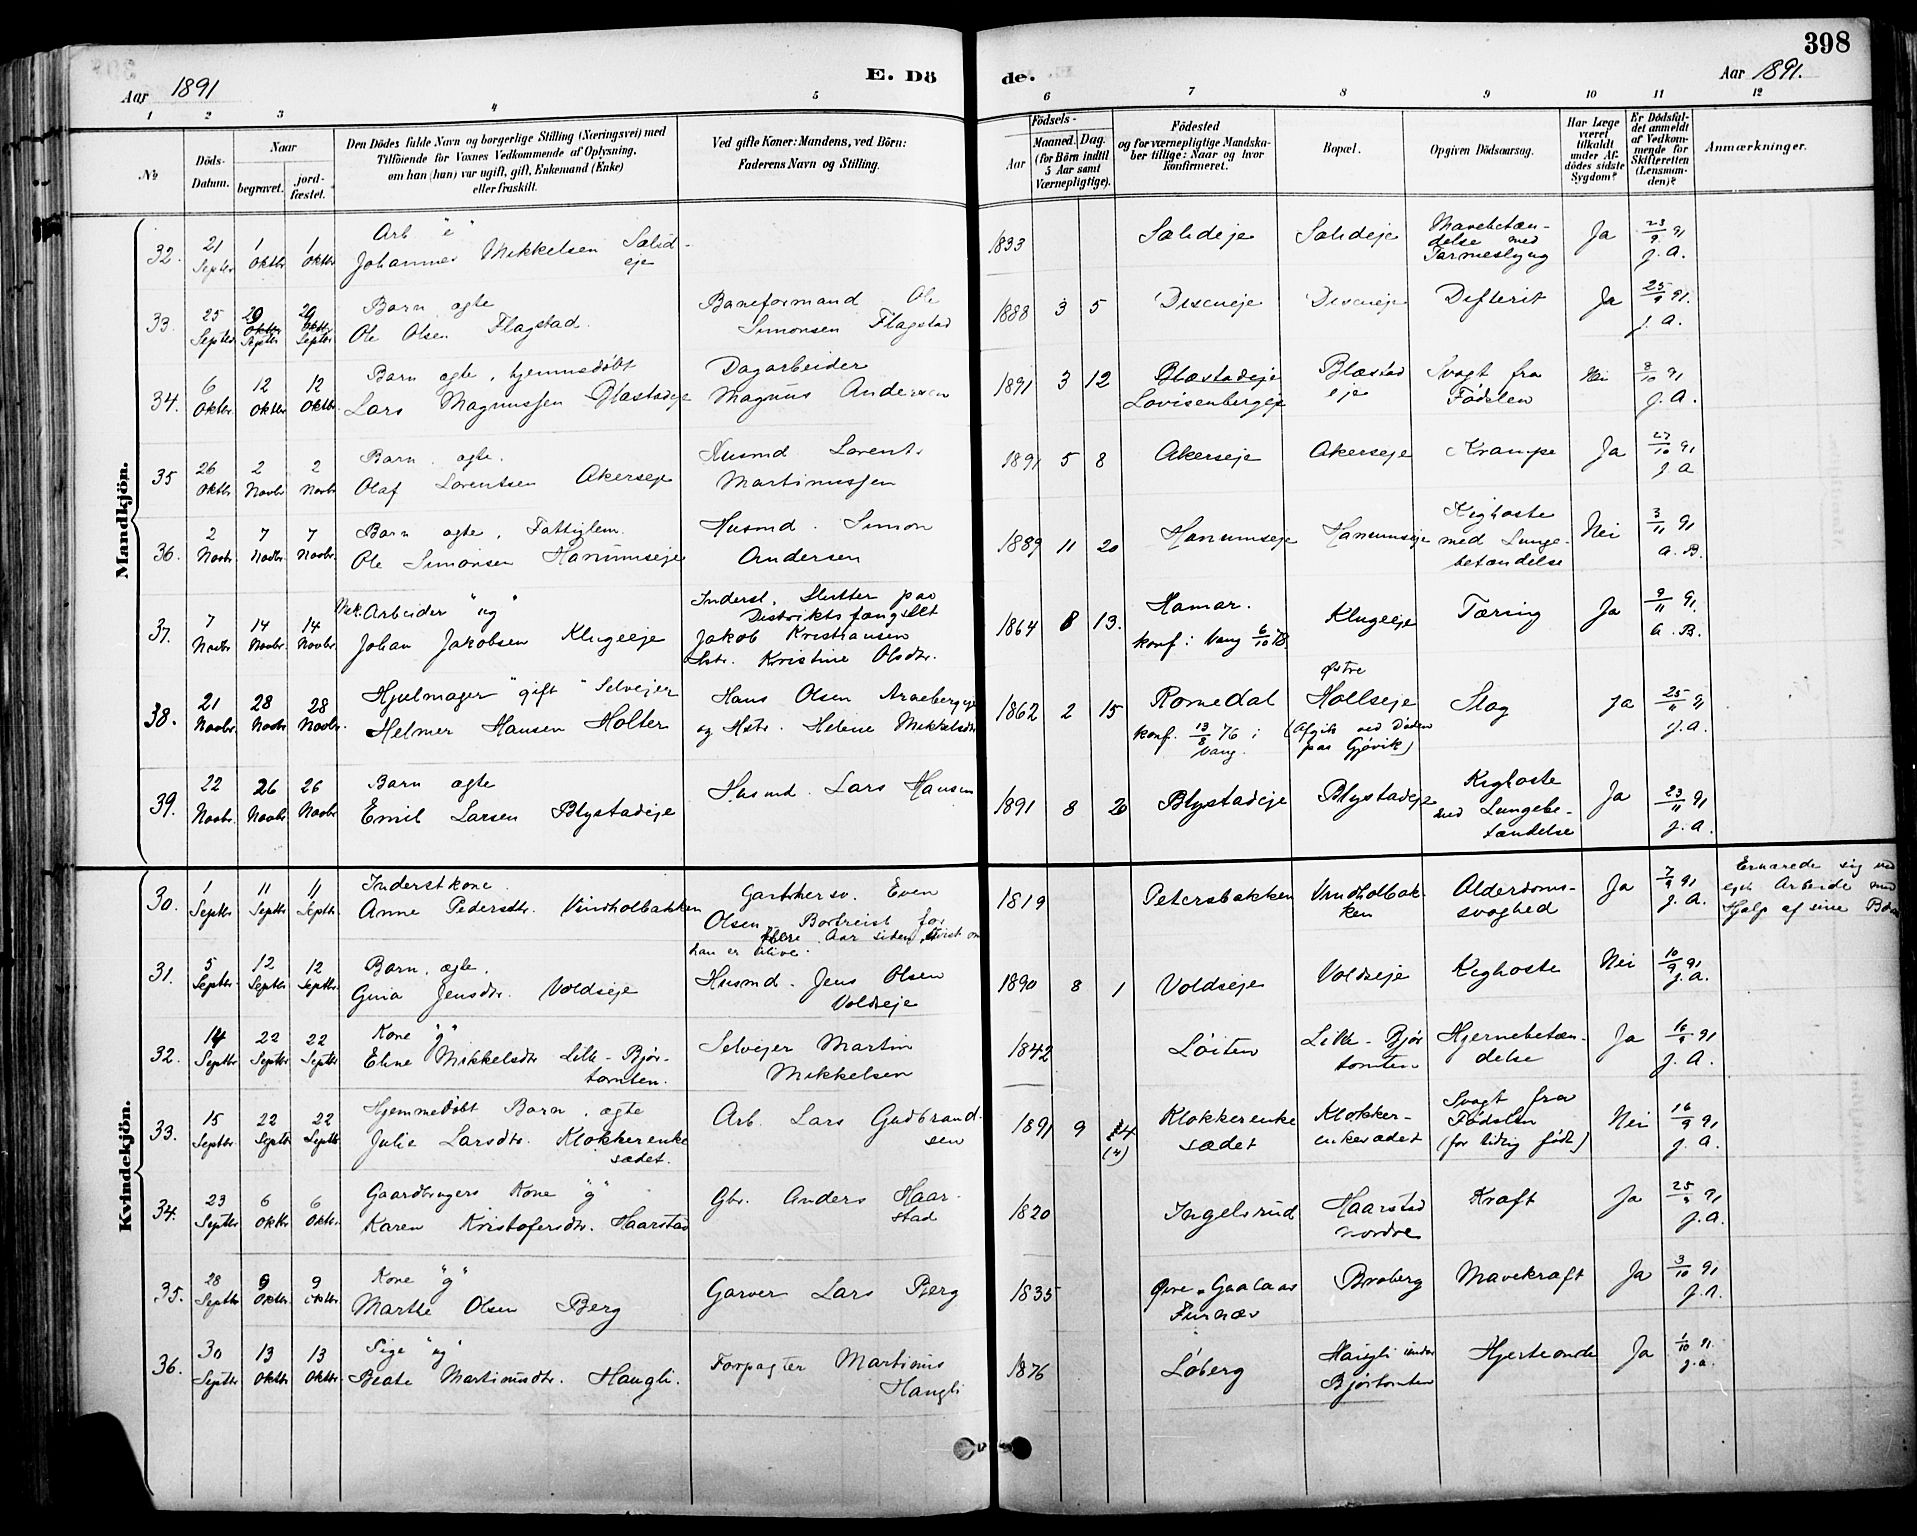 398
Aar 1891
E. Dö de.
Aar 1891.
1 2 3 4 5 6 7 8 9 10 11 12
№
Döds-Datum.
Naar
begravet.
jord-fæstet.
Den Dödes fulde Navn og borgerlige Stilling (Næringsvei) med
Tilföiende for Voxnes Vedkommende af Oplysning,
om han (hun) var ugift, gift, Enkemand (Enke)
eller fraskilt.
Ved gifte Koner: Mandens, ved Börn:
Faderens Navn og Stilling.
Födsels-
Aar
Maaned. Dag.
(for Börn indtil
5 Aar samt
Værnepligtige).
Födested
og for værnepligtige Mandska-
ber tillige: Naar og hvor
konfirmeret.
Bopæl.
Opgiven Dödsaarsag.
Har Læge
været
tilkaldt
under Af-
dödes sidste
Sygdom?
Er Dödsfal-
det anmeldt
af Vedkom-
mende for
Skifteretten
(Lensman-
den)?
Anmærkninger.
Mandkjön.
32. 21 Septbr 1 Oktbr 1 Oktbr
Arb
Johannes Mikkelsen Salid-
eje
1833 Salideje Salideje
Mavebetæn-
delse med
Tarmeslyng
Ja 23/9 91 J. A.
33. 25 Septbr 29 Septbr 29 Septbr
Barn ægte
Ole Olsen Flagstad.
Baneformand Ole
Simonsen Flagstad
1888 3 5 Discueje Discueje Difterit Ja 25/9 91. J. A.
34. 6 Oktbr. 12 Oktbr 12 Oktbr.
Barn ægte, hjemmedøbt
Lars Magnussen Blæstadeje
Dagarbeider
Magnus Andersen
1891 3 12 Blæstadeje
Lovisenbergeje
Blæstad
eje
Svagt fra
Fødslen
Nei 8/10 91 J. A.
35 26 Oktbr. 2 Novbr 2 Novbr
Barn ægte.
Olaf Lorentsen Akerseje
Husmd Lorents
Martinussen
1891 5 8 Akerseje Akerseje Krampe Ja 27/10 91 J. A
36. 2 Novbr 7 Novbr 7 Novbr.
Barn ægte, Fattiglem.
Ole Simonsen Hanumseje
Husmd. Simon
Andersen
1889 11 20 Hanumseje Hanumseje
Kighoste
med Lunge-
betændelse
Nei 3/11 91 A. B.
37. 7 Novbr 14 Novbr. 14 Novbr.
Arbeider "ug"
Johan Jakobsen Klugeeje
Inderst, Slutter paa
Distriktsfængslet
Jakob Kristiansen
Hstr. Kristine Olsdtr.
1864 8 13. Hamar.
konf. i Vang 6/10 78
Klugeeje Tæring Ja 9/11 91. A. B.
38. 21 Novbr. 28 Novbr 28 Novbr.
Hjulmager "gift" Selvejer
Helmer Hansen Holter
Hans Olsen Arnebergeje
og Hstr. Helene Mikkelsdtr
1862 2 15 Romedal
konf. 13/8 76 i
Vang.
Østre
Hollseje
(Afgik ved Døden
paa Gjøvik)
Slag Ja 25/11 J. A.
39. 22 Novbr. 26 Novbr. 26 Novbr
Barn ægte
Emil Larsen Blystadeje
Husmd. Lars Hansen
1891 8 20 Blystadeje Blystadeje
Kighoste
med Lungebe-
tændelse
Ja 23/11 91 J. A.
Kvindekjön.
30. 1 Septbr 11 Septbr 11 Septbr
Inderstkone.
Anne Pedersdtr. Vindholbakken
Even
Olsen. Bortreist for
flere Aar siden, uvist om
han er ilive.
1819 Petersbakken
Vindholbak-
ken
Alderdoms-
svaghed
Ja 7/9 91 J. A.
Ernærede sig ved
eget Arbeide med
Hjælp af sine Børn
31. 5 Septbr. 12 Septbr. 12 Septbr.
Barn, ægte.
Gina Jensdtr. Voldseje
Husmd. Jens Olsen
Voldseje
1890 8 1 Voldseje Voldseje Kighoste Nei 10/9 91 J. A.
32. 14 Septbr 22 Septbr 22 Septbr
Kone "g"
Eline Mikkelsdtr Lille-Bjør-
tomten.
Selvejer Martin
Mikkelsen
1842 Løiten
Lille-Bjør
tomten
Hjernebetæn-
delse
Ja 16/9 91 J. A.
33. 15 Septbr. 22 Septbr 22 Septbr
Hjemmedøbt Barn, ægte
Julie Larsdtr. Klokkerenke
sædet.
Arb. Lars Gudbrand-
sen
1891 9 14
(4)
Klokkerenke
sædet
Klokker-
enkesædet
Svagt fra
Fødslen
(for tidlig født)
Nei 16/9 91 J. A.
34. 23 Septbr 6 Oktbr 6 Oktbr.
Gaardbrugers Kone "g"
Karen Kristofersdtr. Haarstad
Gbr. Anders Haar-
stad
1820 Ingelsrud
Haarstad
nordre
Kræft Ja 25/9 91 J. A.
35. 28 Septbr 9 Oktbr. 9 Oktbr
Kone "g"
Marthe Olsen Berg
Garver Lars Berg
1835 Øvre-Gaalaas
Furnæs
Broberg Mavekræft Ja 3/10 91 J. A.
36. 30 Septbr 13 Oktbr 13 Oktbr
Pige "ug"
Beate Martinusdtr. Haugli.
Forpagter Martinus
Haugli
1876 Løberg
Haugli under
Bjørtomten
Hjerteonde Ja 1/10 91. J. A.